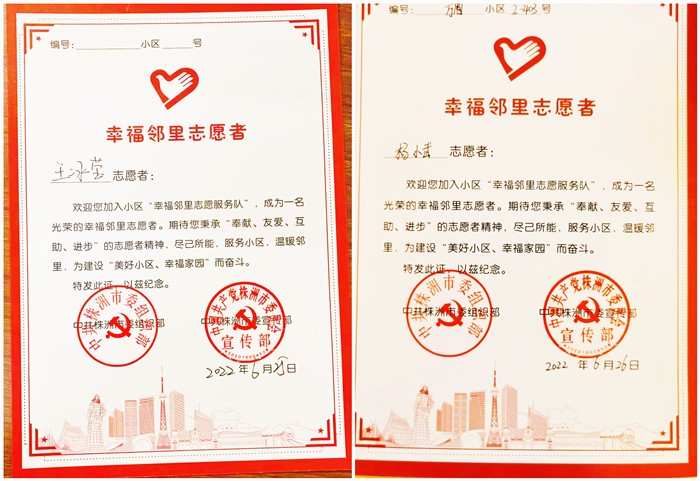 编号：小区 号
幸福邻里志愿者
王冰莹 志愿者：
欢迎您加入小区“幸福邻里志愿服务队”，成为一名
光荣的幸福邻里志愿者。期待您秉承“奉献、友爱、互
助、进步”的志愿者精神，尽己所能，服务小区，温暖邻
里，为建设“美好小区、幸福家园”而奋斗。
特发此证，以兹纪念。
中共株洲市委组织部
中共株洲市委组织部
中国共产党株洲市委员会
宣传部
中共株洲市委宣传部
2022年6月25日
编号： 小区 2-403 号
幸福邻里志愿者
杨 志愿者：
欢迎您加入小区“幸福邻里志愿服务队”，成为一名
光荣的幸福邻里志愿者。期待您秉承“奉献、友爱、互
助、进步”的志愿者精神，尽己所能，服务小区，温暖邻
里，为建设“美好小区、幸福家园”而奋斗。
特发此证，以兹纪念。
中共株洲市委组织部
中共株洲市委组织部
中国共产党株洲市委员会
宣传部
中共株洲市委宣传部
2022 年 6 月 26 日